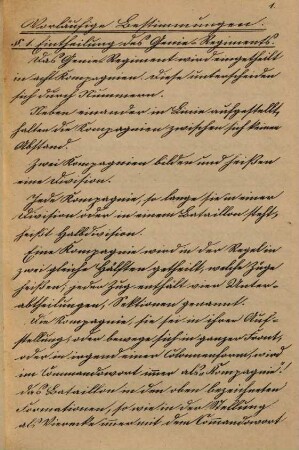 1.
Vorläufige Bestimmungen.
§ 1 Eintheilung des Genie-Regiments.
Das Genie Regiment wird eingetheilt
in acht Kompagnien, diese unterscheiden
sich durch Nummern.
Neben einander in Linie aufgestellt,
halten die Kompagnien zwischen sich keinen
Abstand.
Zwei Kompagnien bilden und heißen
eine Division.
Jede Kompagnie, so lange sie in einer
Division oder in einem Bataillon steht,
heißt Halbdivision.
Eine Kompagnie wird in der Regel in
zwei gleiche Hälften getheilt, welche Züge
heißen, jeder Zug enthält vier Unter-
abtheilungen, Sektionen genannt.
Die Kompagnie, sie sei in ihrer Auf-
stellung, oder bewege sich in ganzer Front,
oder in irgend einer Colonnenform, wird
im Commandowort immer als „Kompagnie"
das Bataillon in den oben bezeichneten
Formationen, so wie in der Stellung
als Vierecke immer mit dem Commandowort